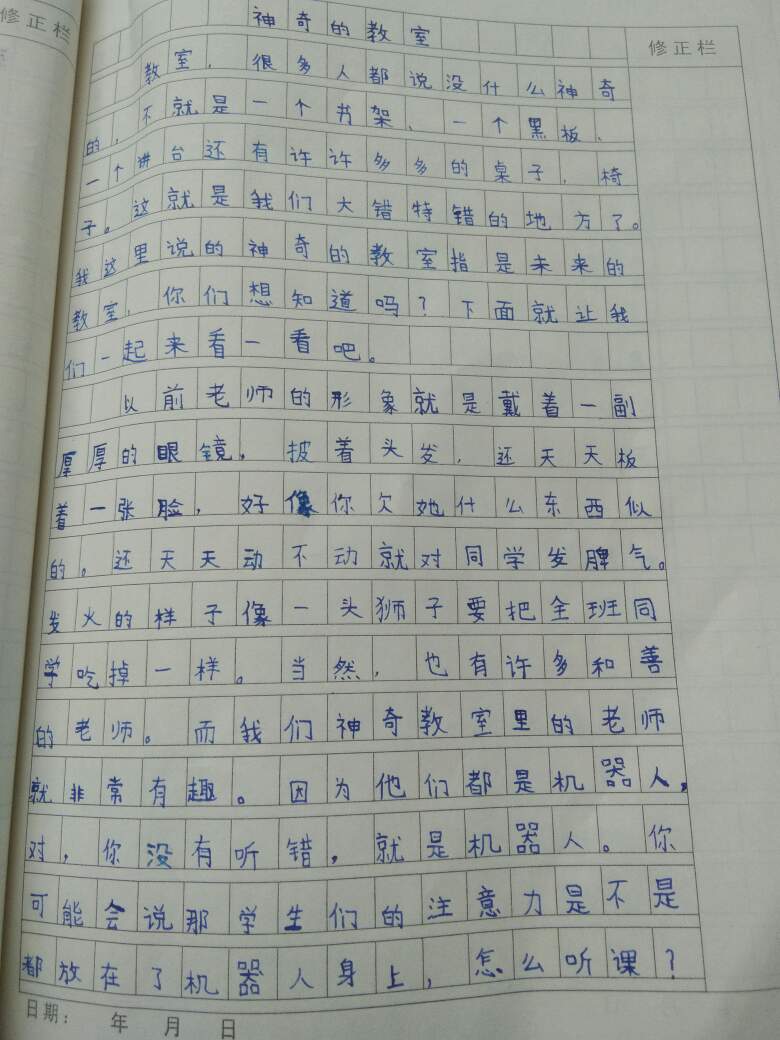 修正栏
神奇的教室
修正栏
教室，很多人都说没什么神奇
的，不就是一个书架、一个黑板、
一个讲台还有许许多多的桌子，椅
子。这就是我们大错特错的地方了。
我这里说的神奇的教室指是未来的
教室，你们想知道吗？下面就让我
们一起来看一看吧。
以前老师的形象就是戴着一副
厚厚的眼镜，披着头发，还天天板
着一张脸，好像你欠她什么东西似
的。还天天动不动就对同学发脾气。
发火的样子像一头狮子要把全班同
学吃掉一样。当然，也有许多和善
的老师。而我们神奇教室里的老师
就非常有趣。因为他们都是机器人，
对，你没有听错，就是机器人。你
可能会说那学生们的注意力是不是
都放在了机器人身上，怎么听课？
日期： 年 月 日